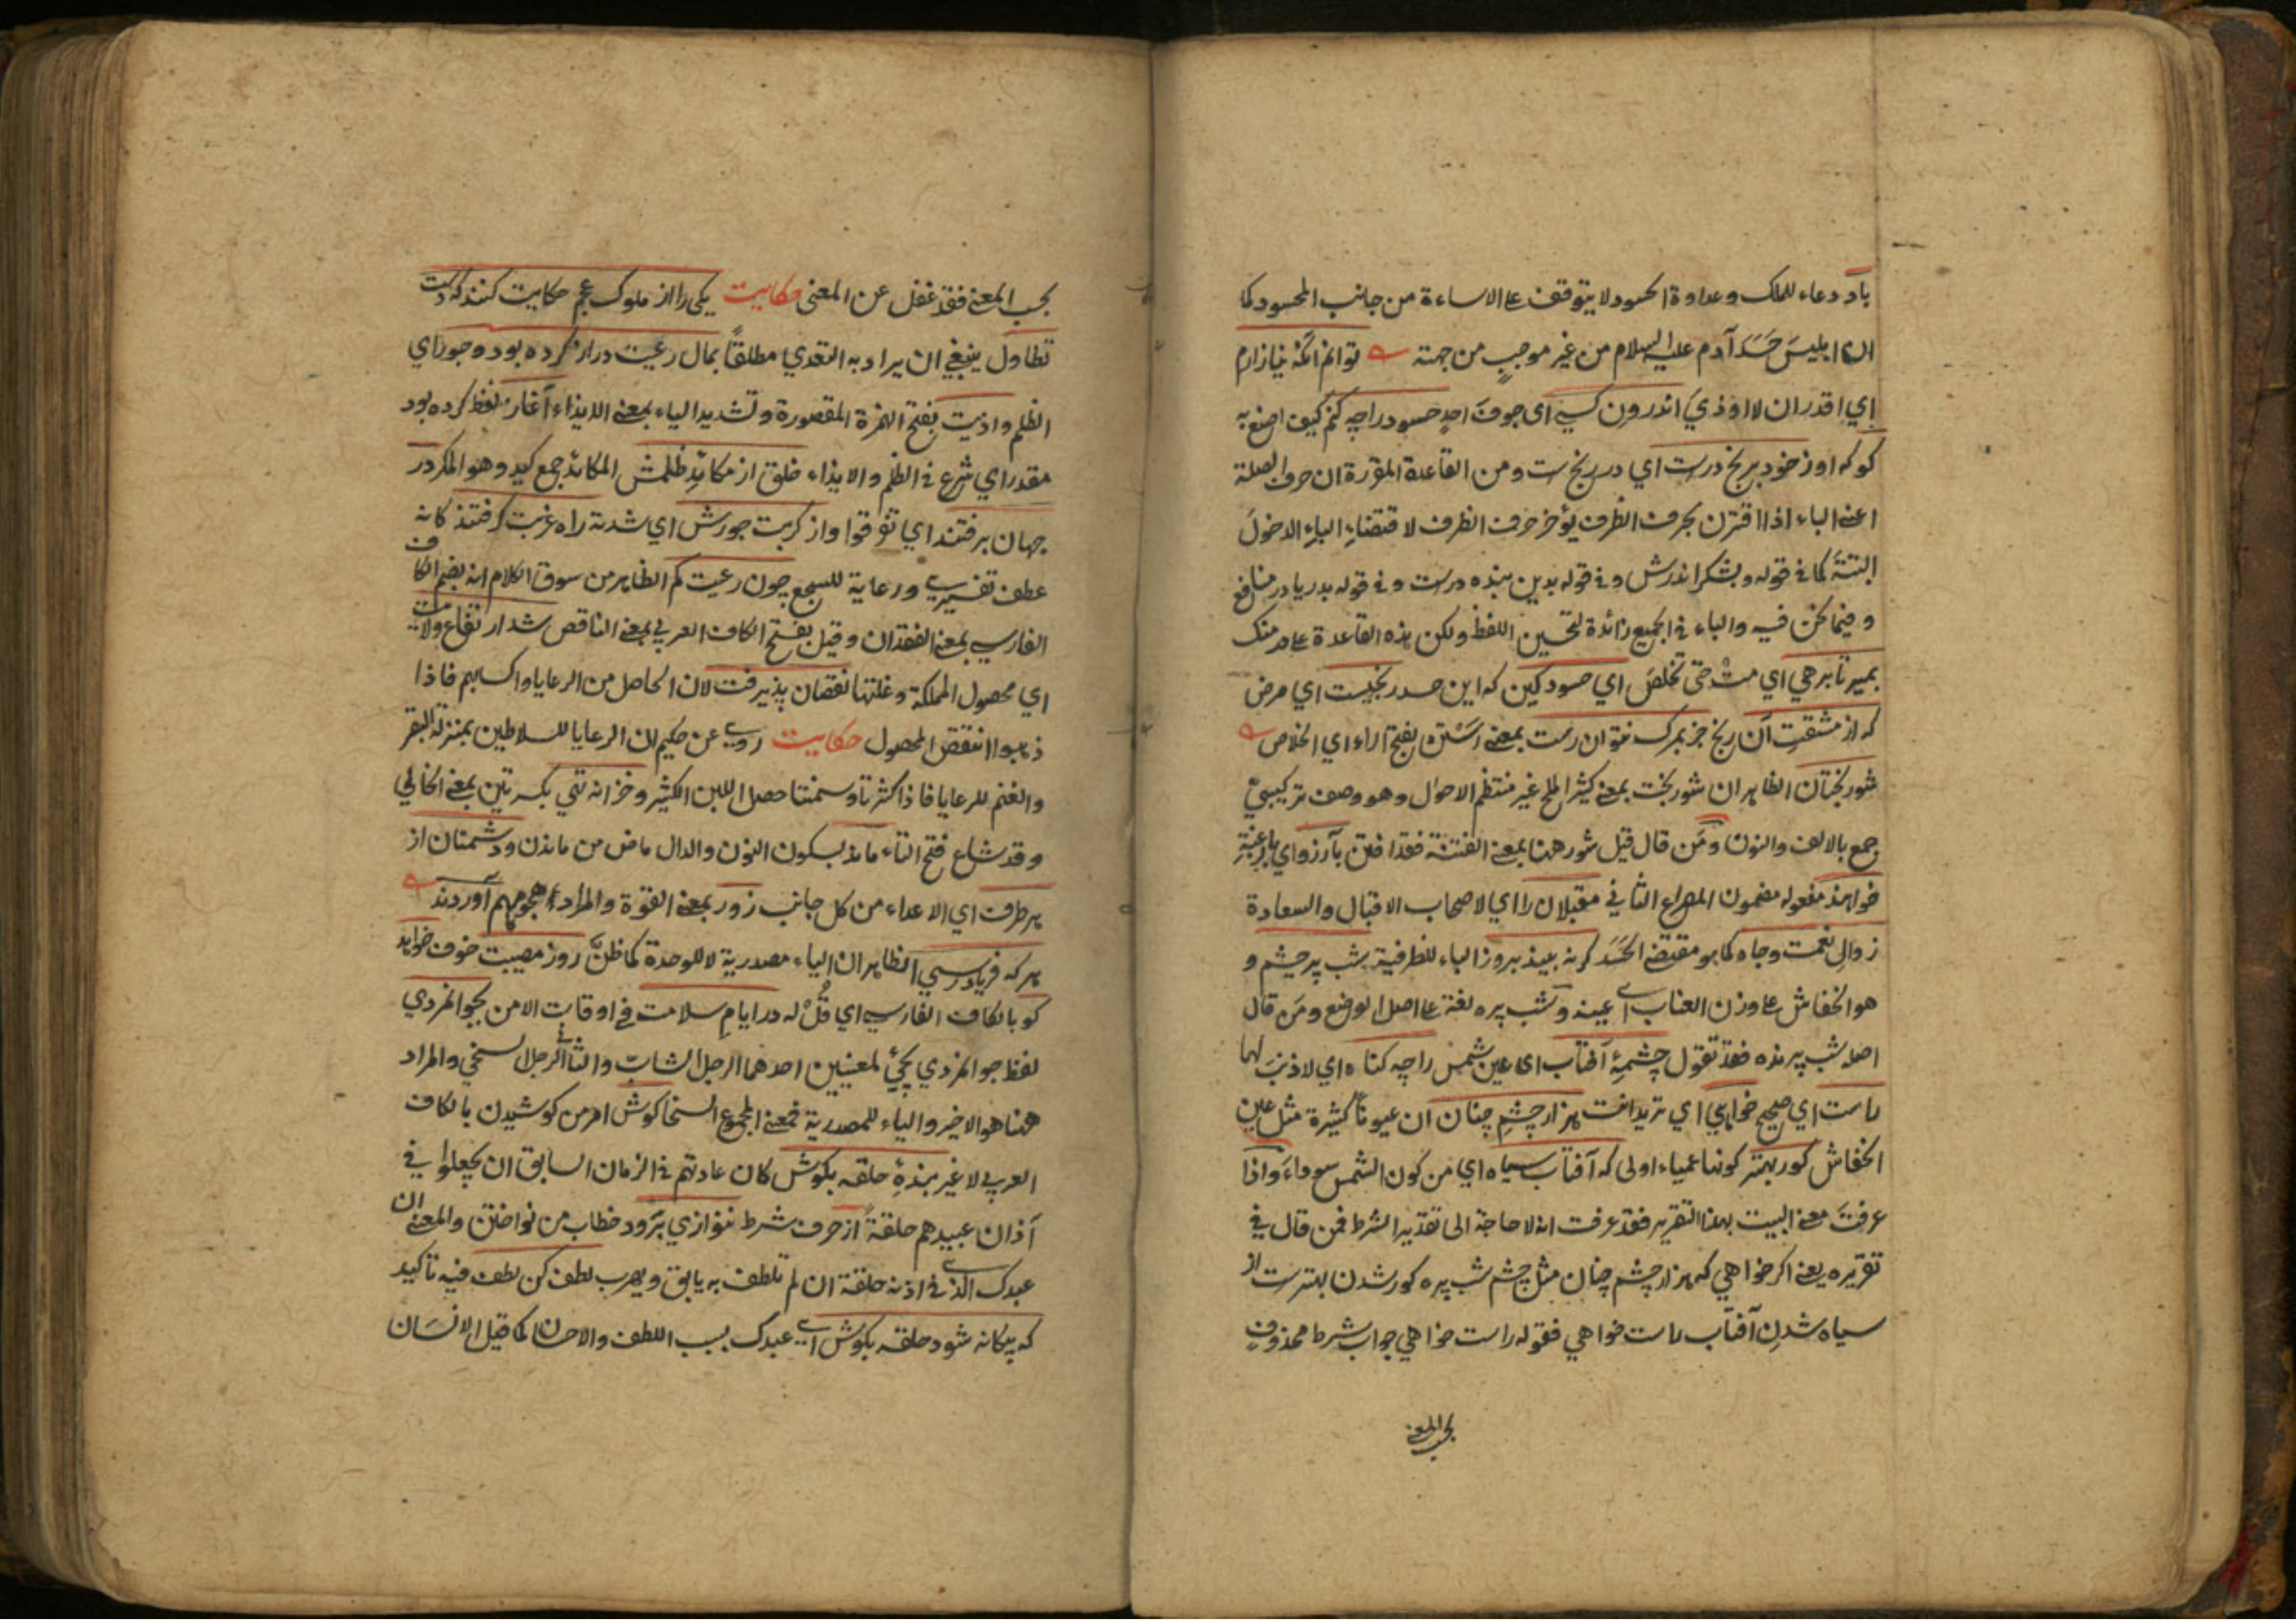 باد دعاء للملك وعداوة الحسود لا يتوقف على الاساءة من جانب المحسود كما
ان ابليس حسد آدم عليه السلام من غير موجب من جهته توانم آنكه نيازارم
اي اقدر ان لا اوذي اندرون كسي اى جوف احد حسود را چه كنم كيف اصنع به
كو كه او ز خود برنج درست اي در رنج ست ومن القاعدة المقررة ان حرف الصلة
اعنى الباء اذا اقترن بحرف الظرف يؤخر حرف الظرف لاقتضاء الباء الدخول
البتة كما في قوله وبشكر اندرش وفي قوله بدين بنده درست وفي قوله بدريا در منافع
وفيما نحن فيه والباء في الجميع زائدة لتحسين اللفظ ولكن هذه القاعدة على
بمير تا برهي اي مت حتى تخلص اي حسود كين كه اين حسد رنجيست اي مرض
كه از مشقت آن رنج جز بمرك نتوان رست بمعنى رستن بفتح الراء اي الخلاص
شور بختان الظاهر ان شور بخت بمعنى كثير الملح غير منتظم الاحوال وهو وصف تركيبي
جمع بالالف والنون ومن قال قيل شور ههنا بمعنى الفتنة فقد افتن بآرزو اي بالرغبة
خواهند مفعوله مضمون المصراع الثاني مقبلان را اي لاصحاب الاقبال والسعادة
زوال نعمت وجاه كما هو مقتضى الحسد كر نه بيند بروز الباء للظرفية شب پره چشم و
هو الخفاش على وزن العناب اى عينه وشب پره لغة على اصل الوضع ومن قال
اصله شب پرنده فقد تقول چشمهٔ آفتاب اى عين شمس را چه كناه اي لا ذنب لها
راست اي صحيح خواهي اي تريد انت هزار چشم چنان ان عيونا كثيرة مثل عين
الخفاش كور بهتر كونها عمياء اولى كه آفتاب سياه اي من كون الشمس سوداء واذا
عرفت معنى البيت بهذا التقرير فقد عرفت انه لا حاجة الى تقدير الشرط فمن قال في
تقريره يعنى اكر خواهي كه هزار چشم چنان مثل چشم شب پره كور شدن بهترست از
سياه شدن آفتاب راست خواهي فقوله راست خواهي جواب شرط محذوف
بحسب المعنى
بحسب المعنى فقد غفل عن المعنى حكايت يكى را از ملوك عجم حكايت كنند كه دست
تطاول ينبغي ان يراد به التعدي مطلقاً بمال رعيت دراز كرده بود وجور اي
الظلم واذيت بفتح الهمزة المقصورة وتشديد الياء بمعنى الايذاء آغاز لفظ كرده بود
مقدر اي شرع في الظلم والايذاء خلق از مكائد ظلمش المكائد جمع كيد وهو المكر در
جهان برفتند اي تفرقوا واز كربت جورش اي شدته راه غربت كرفتند كانه
عطف تفسيري ورعاية للسجع چون رعيت كم الظاهر من سوق الكلام انه بضم الكاف
الفارسي بمعنى الفقدان وقيل بفتح الكاف العربي بمعنى الناقص شد ارتفاع ولايت
اي محصول المملكة وغلتها نقصان پذيرفت لان الحاصل من الرعايا واكسابهم فاذا
ذهبوا انتقض المحصول حكايت روى عن حكيم ان الرعايا للسلاطين بمنزلة البقر
والغنم للرعايا فاذا كثرتا وسمنتا حصل اللبن الكثير وخزانه تهي بكسرتين بمعنى الخالي
وقد شاع فتح التاء ماند بسكون النون والدال ماض من ماندن ودشمنان از
هر طرف اي الاعداء من كل جانب زور بمعنى القوة والمراد هجومهم آوردند
هر كه فريادرسي الظاهر ان الياء مصدرية لا للوحدة كما ظن روز مصيبت خوف خواهد
كو بالكاف الفارسي اي قل له در ايام سلامت في اوقات الامن بجوانمردي
لفظ جوانمردي يجئ لمعنيين احدهما الرجل الشاب والثاني الرجل السخي والمراد
ههنا هو الاخير والياء للمصدرية فمعنى المجموع السخا كوش امر من كوشيدن بالكاف
العربي لا غير بندهٔ حلقه بكوش كان عادتهم في الزمان السابق ان يجعلوا في
آذان عبيدهم حلقة از حرف شرط ننوازي برود خطاب من نواختن والمعنى ان
عبدك الذي في اذنه حلقة ان لم تلطف به يابق ويهرب لطف كن لطف فيه تاكيد
كه بيكانه شود حلقه بكوش اى عبدك بسبب اللطف والاحسان كما قيل الانسان